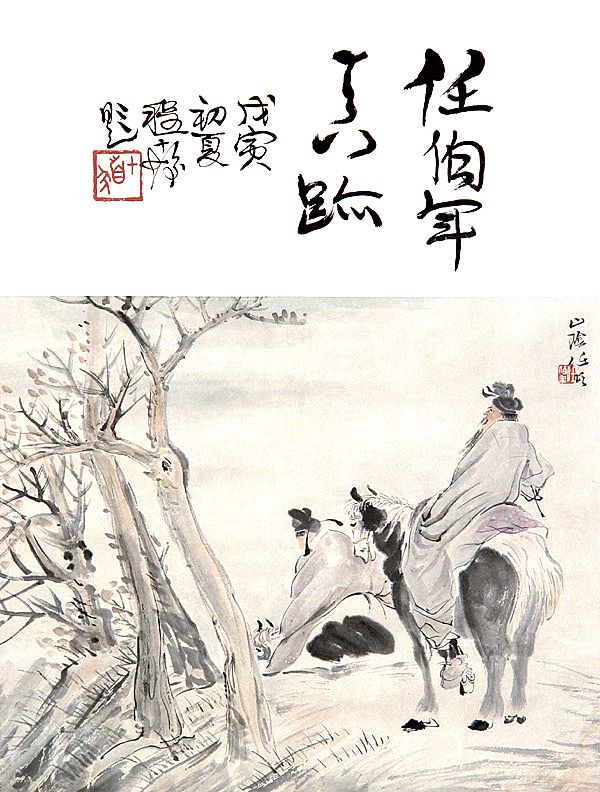 任伯年
真跡
戊寅
初夏
程十髮
題
山陰任頤